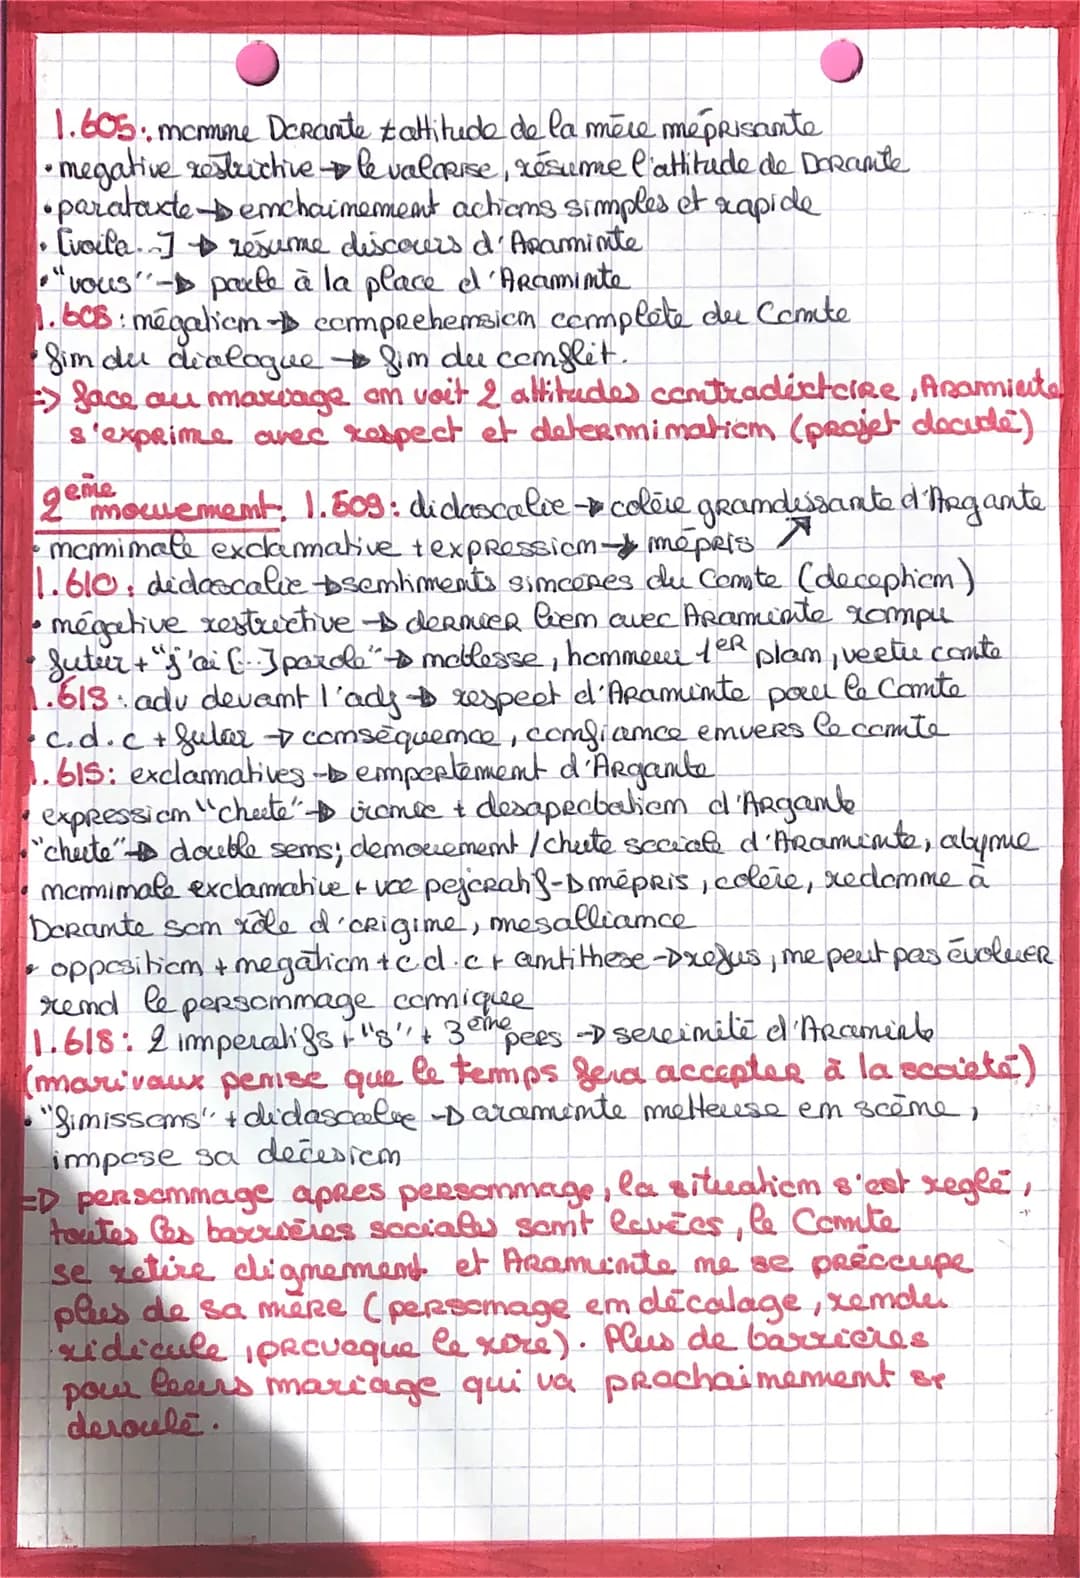 l.605: nomme Dorante ≠ attitude de la mère méprisante
• negative restrictive → le valorise, résume l'attitude de Dorante
• parataxte → enchainement actions simples et rapide
• [voila...] → résume discours d'Araminte
• "vous" → parle à la place d'Araminte
l.608: négation → comprehension complète du Comte
• fin du dialogue → fin du conflit.
=> face au mariage on voit 2 attitudes contradictoire, Araminte
s'exprime avec respect et determination (projet decidé)
2ème mouvement: l.609: didascalie → colère grandissante d'Argante
• nominale exclamative + expression → mépris ↗
l.610: didascalie → sentiments sincères du Comte (deception)
• négative restrictive → dernier lien avec Araminte rompu
• futur + "j'ai [...] parole" → noblesse, honneur 1er plan, vertu comte
l.613: adv devant l'adj → respect d'Araminte pour le Comte
• c.d.c + futur → conséquence, confiance envers le comte
l.615: exclamatives → emportement d'Argante
• expression "chute" → ironie + desaprobation d'Argante
• "chute" → double sens; denouement / chute sociale d'Araminte, abyme
• nominale exclamative + voc pejoratif → mépris, colère, redonne à
Dorante son rôle d'origine, mesalliance
• opposition + negation + c.d.c + antithese → refus, ne peut pas évoluer
rend le personnage comique
l.618: 2 imperatifs + "s" + 3ème pers → sereinité d'Araminte
(marivaux pense que le temps fera accepter à la societé)
• "finissons" + didascalie → araminte metteuse en scène,
impose sa decesion
=> personnage apres personnage, la situation s'est reglé,
toutes les barrières sociales sont levées, le Comte
se retire dignement et Araminte ne se préccupe
plus de sa mère (personage en décalage, rendu
ridicule, provoque le rire). Plus de barrieres
pour leurs mariage qui va prochainement se
deroulé.